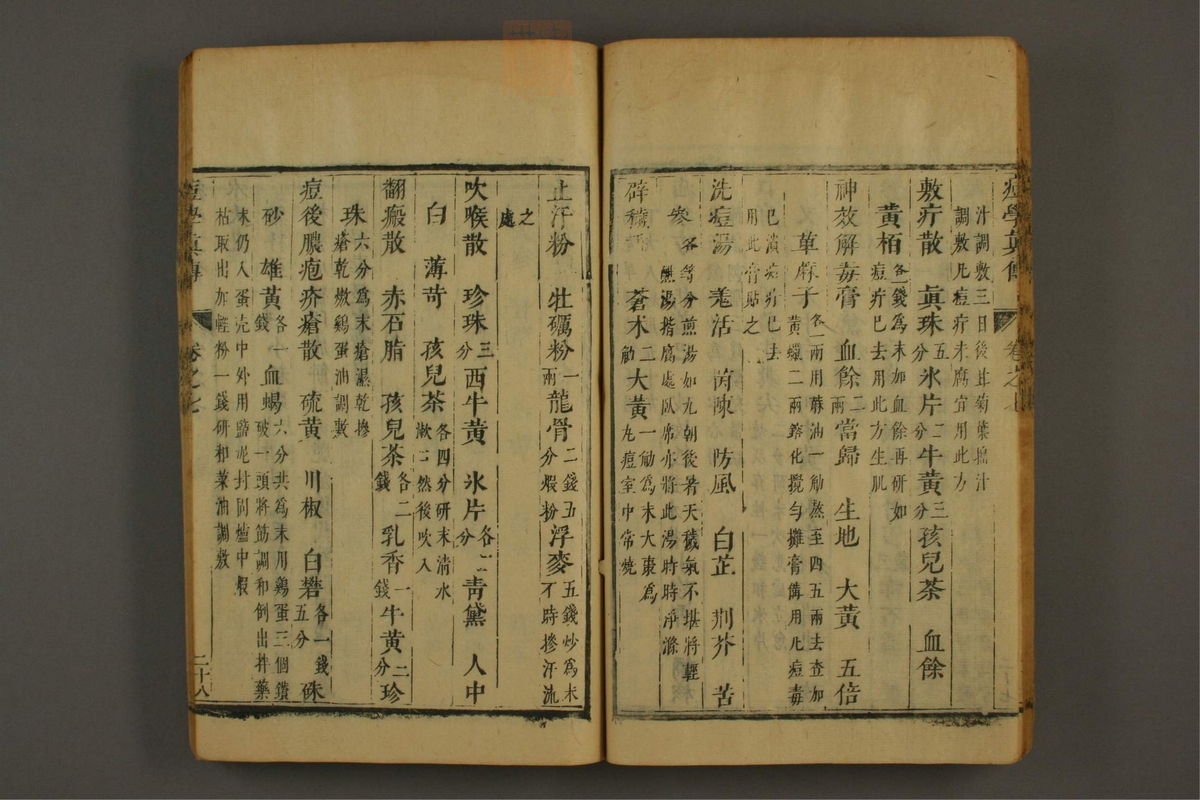 痘學真傳 卷之七
汁調敷三日後甘菊葉搗汁
調敷凡痘疔未腐宜用此方
敷疔散 真珠五分氷片二分牛黃三分孩兒茶 血餘
黃栢各一錢為末加血餘再研如痘疔已去用此方生肌
神效解毒膏 血餘二兩當歸 生地 大黃 五倍
萆麻子各一兩用蔴油一觔熬至四五兩去查加黃蠟二兩鎔化攪勻攤膏備用凡痘毒
已潰痘疔已去
用此膏貼之
洗痘湯 羗活 茵陳 防風 白芷 荆芥 苦
參各等分煎湯如九朝後暑天穢氣不堪將輕絹蘸湯揩腐處臥席亦將此湯時時淨滌
辟穢丹 蒼朮二觔大黃一觔為末大棗為丸痘室中常燒
止汗粉 牡礪粉一兩龍骨二錢五分煆粉浮麥五錢炒為末不時摻汗流
之處
吹喉散 珍珠三分西牛黃 氷片各二分青黛 人中
白 薄苛 孩兒茶各四分研末清水漱口然後吹入
翻瘢散 赤石脂 孩兒茶各二錢乳香一錢牛黃二分珍
珠六分為末瘡濕乾摻瘡乾熬鷄蛋油調敷
痘後膿疱疥瘡散 硫黃 川椒 白礬各一錢五分硃
砂 雄黃各一錢血蝎六分共為末用鷄蛋三個鑽破一頭將筯調和倒出拌藥
末仍入蛋壳中外用鹽泥封固爐中煆
枯取出加輕粉一錢研和菜油調敷
痘學真傳 卷之七 二十八